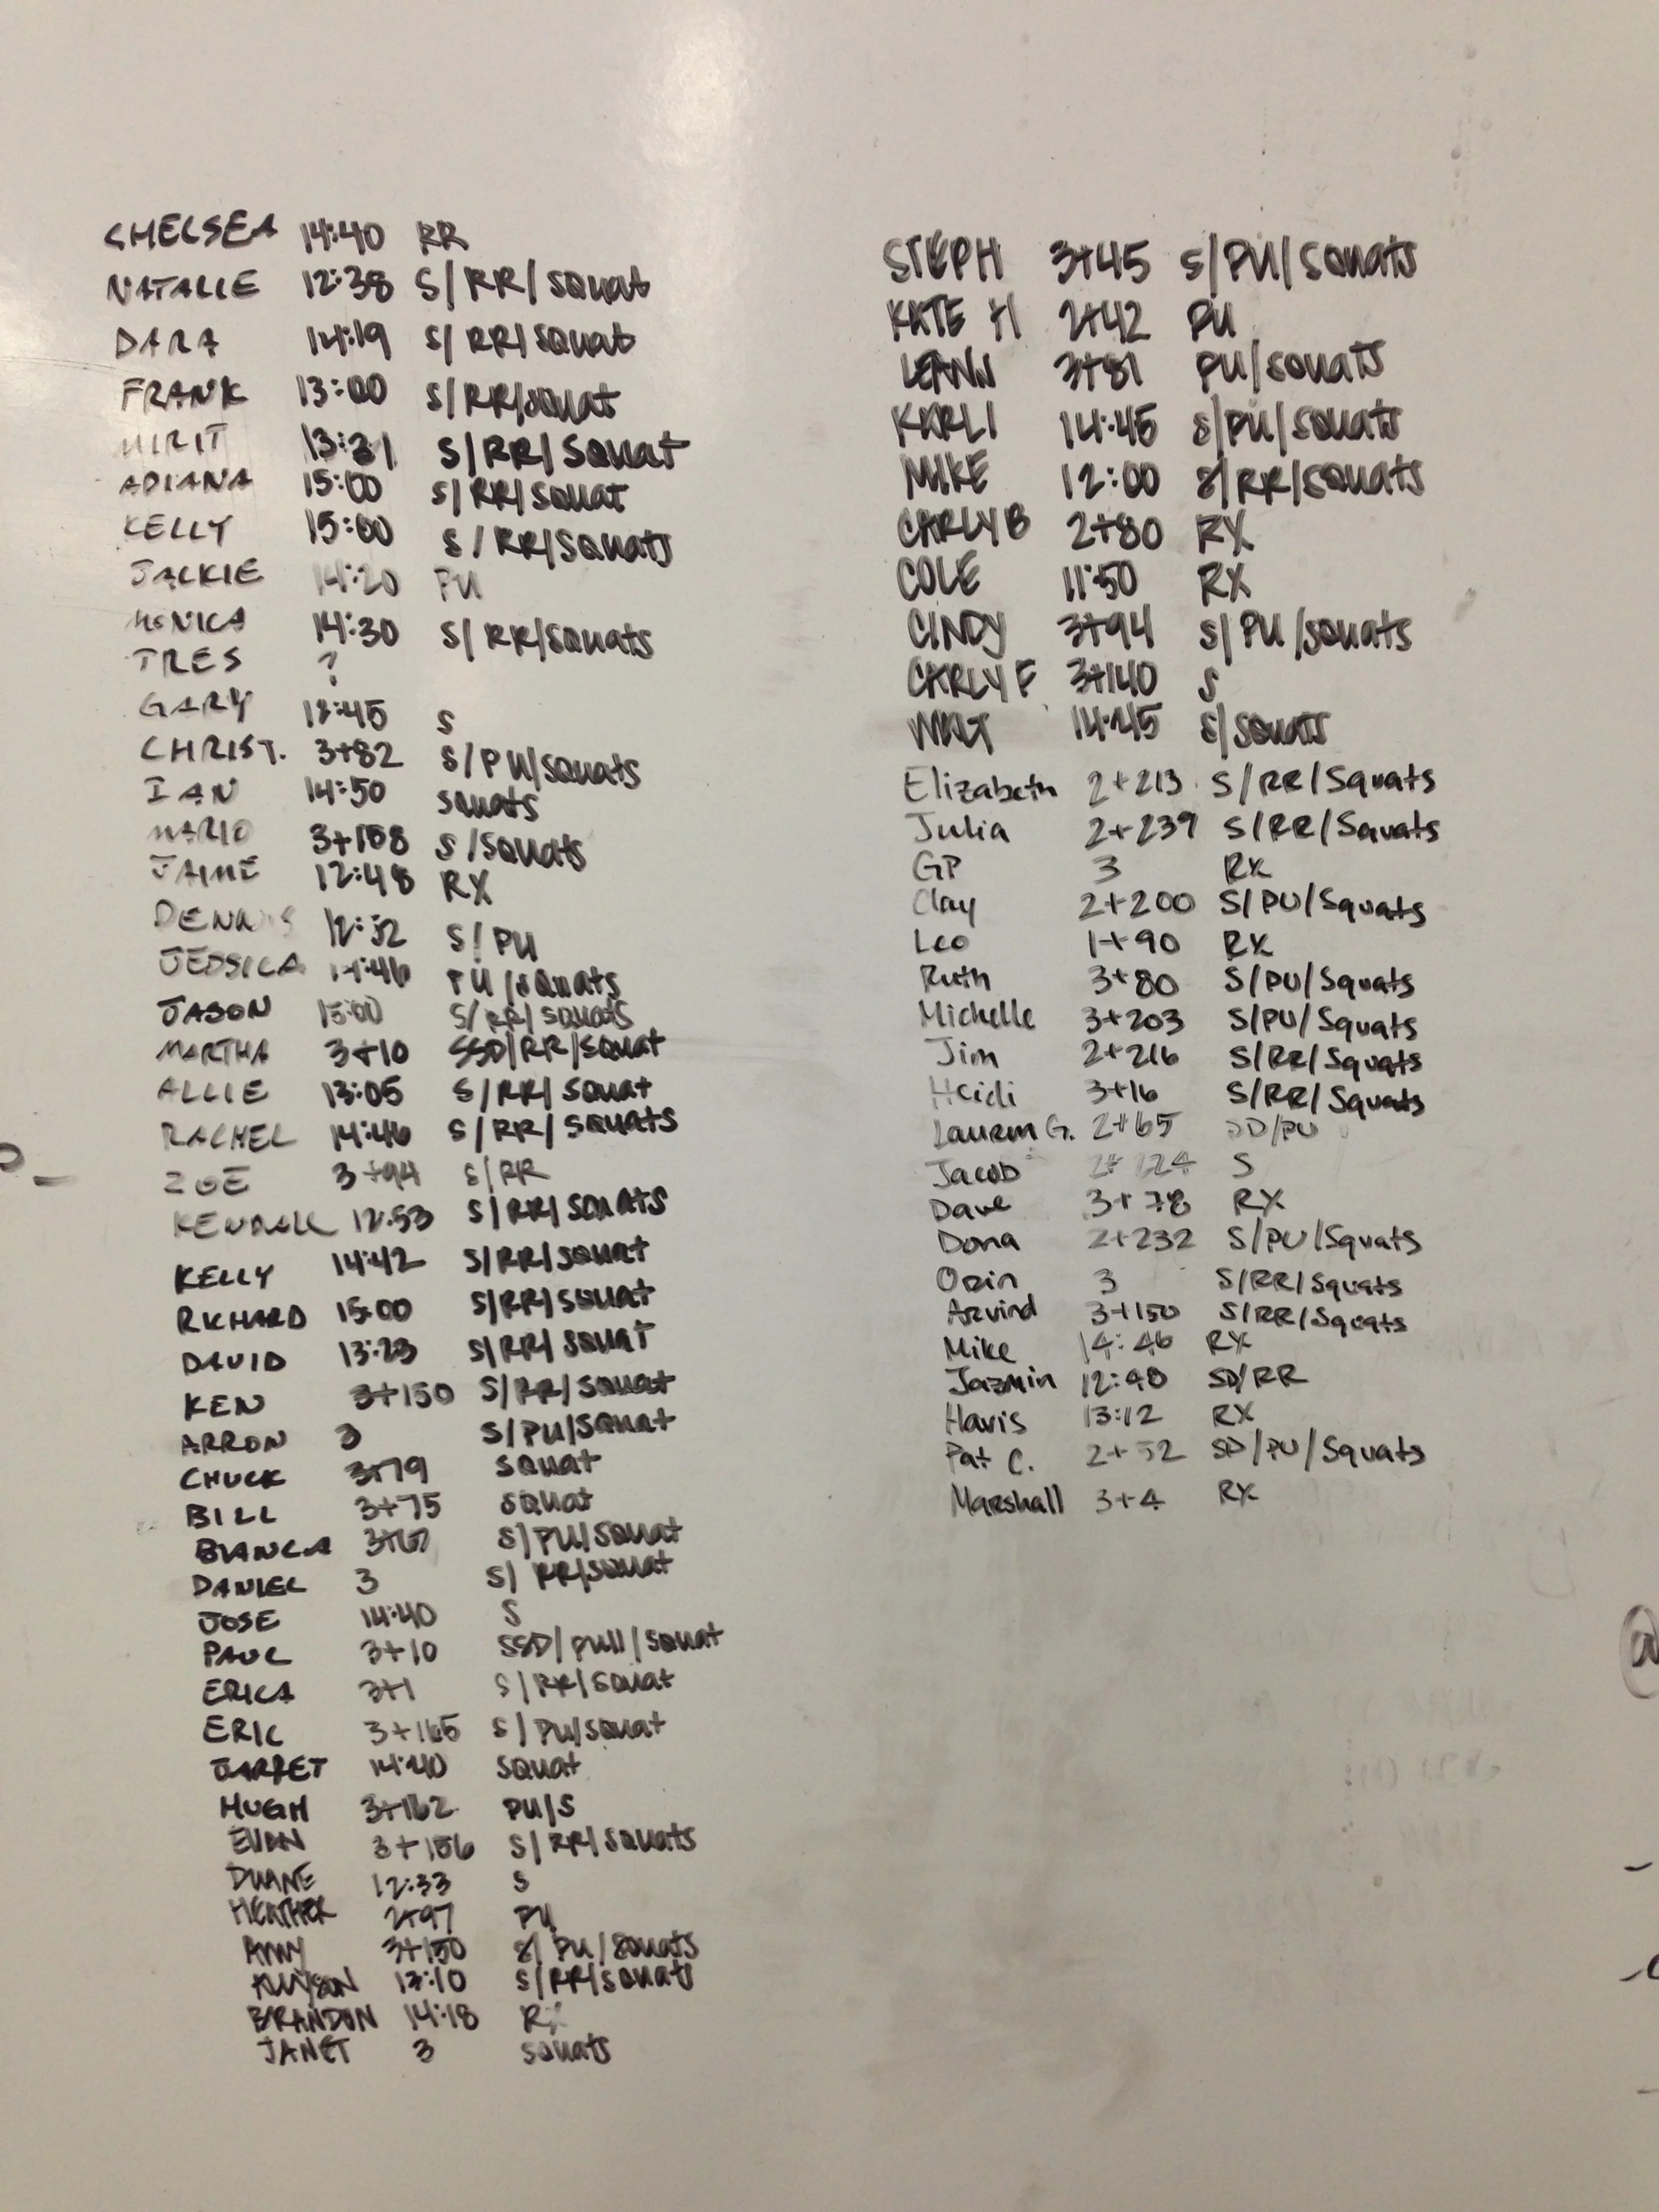 CHELSEA 14:40 RR
NATALIE 12:38 S/RR/squat
DARA 14:19 S/RR/squat
FRANK 13:00 S/RR/squat
MIRIT 13:31 S/RR/squat
ADIANA 15:00 S/RR/squat
KELLY 15:00 S/RR/squats
JACKIE 14:20 PU
MONICA 14:30 S/RR/squats
TRES ?
GARY S
CHRIST. 3+82 S/PU/squats
IAN 14:50 squats
MARIO S/squats
JAIME 12:48 RX
DENNIS S/PU
JESSICA 14:46 PU/squats
JASON 15:00 S/RR/squats
MARTHA 3+10 SSD/RR/squat
ALLIE 13:05 S/RR/squat
RACHEL 14:46 S/RR/squats
ZOE 3+94 S/RR
KENDALL 12:53 S/RR/squats
KELLY 14:42 S/RR/squat
RICHARD 15:00 S/RR/squat
DAVID 13:23 S/RR/squat
KEN 3+150 S/RR/squat
ARRON 3 S/PU/squat
CHUCK 3+79 squat
BILL 3+75 squat
BIANCA S/PU/squat
DANIEL 3 S/RR/squat
JOSE 14:40 S
PAUL 3+10 SSD/pull/squat
ERICA 3+1 S/RR/squat
ERIC 3+165 S/PU/squat
JARRET 14:40 squat
HUGH 3+162 PU/S
EVAN 3+156 S/RR/squats
DUANE 12:33 S
HEATHER 2+97 PU
AMY 3+150 S/PU/squats
ALLYSON 13:10 S/RR/squats
BRANDON 14:18 RX
JANET 3 squats
STEPH 3+45 S/PU/squats
KATE H 2+42 PU
LEANN 3+81 PU/squats
KARLI 14:45 S/PU/squats
MIKE 12:00 S/RR/squats
CARLY B 2+80 RX
COLE 11:50 RX
CINDY 3+94 S/PU/squats
CARLY F 3+140 S
WALT 14:45 S/squats
Elizabeth 2+213 S/RR/Squats
Julia 2+239 S/RR/Squats
GP 3 RX
Clay 2+200 S/PU/Squats
Leo 1+90 RX
Ruth 3+80 S/PU/Squats
Michelle 3+203 S/PU/Squats
Jim 2+216 S/RR/Squats
Heidi 3+16 S/RR/Squats
Lauren G. 2+65 SD/PU
Jacob 2+124 S
Dave 3+78 RX
Dona 2+232 S/PU/Squats
Orin 3 S/RR/Squats
Arvind 3+150 S/RR/Squats
Mike 14:46 RX
Jazmin 12:48 SD/RR
Havis 13:12 RX
Pat C. 2+52 SD/PU/Squats
Marshall 3+4 RX